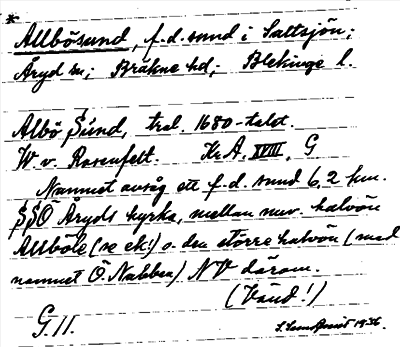 *
Allbösund, f.d. sund i Saltsjön;
Åryd sn; Bräkne hd; Blekinge l.
Albö Sund, trol. 1680-talet.
W. v. Rosenfelt. Kr.A. XVIII, G
Namnet avsåg ett f.d. sund 6,2 km.
SSÖ Åryds kyrka, mellan nuv. halvön
Allböle (se ek!) o. den större halvön (med
namnet Ö. Nabben) NV därom.
(Vänd!)
G. 11. 1936